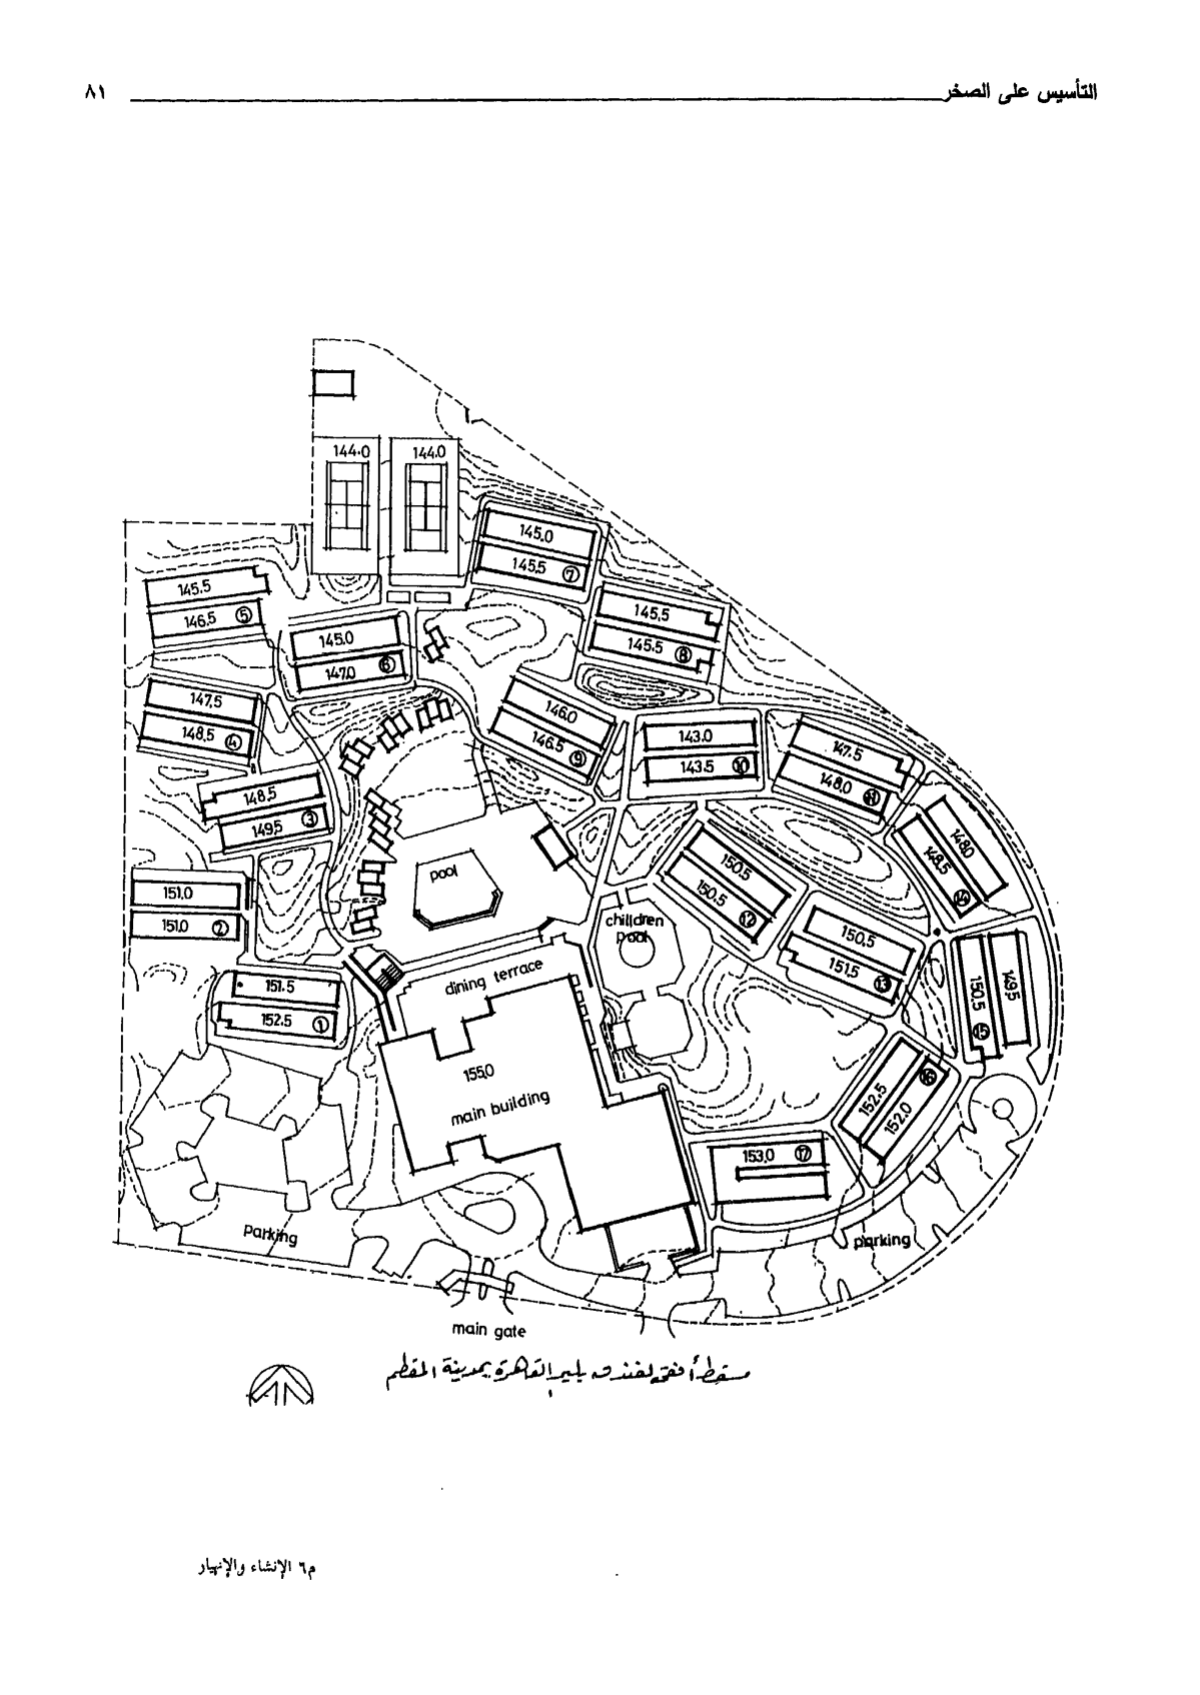 التأسيس على الصخر ٨١
144.0 144.0
145.0
145.5 ⑦
145.5
146.5 ⑤
145.5
145.5 ⑧
145.0
147.0 ⑥
147.5
148.5 ④
146.0
146.5 ⑨
143.0
143.5 ⑩
147.5
148.0 ⑪
148.5
149.5 ③
148.0
148.5 ⑭
150.5
150.5 ⑫
pool
151.0
151.0 ②
children
pool
150.5
151.5 ⑬
149.5
150.5 ⑮
dining terrace
151.5
152.5 ①
155.0
main building
152.5
152.0 ⑯
153.0 ⑰
parking
parking
main gate
مسقط أفقى لفندق بلير القاهرة بمدينة المقطم
م٦ الإنشاء والإنهيار